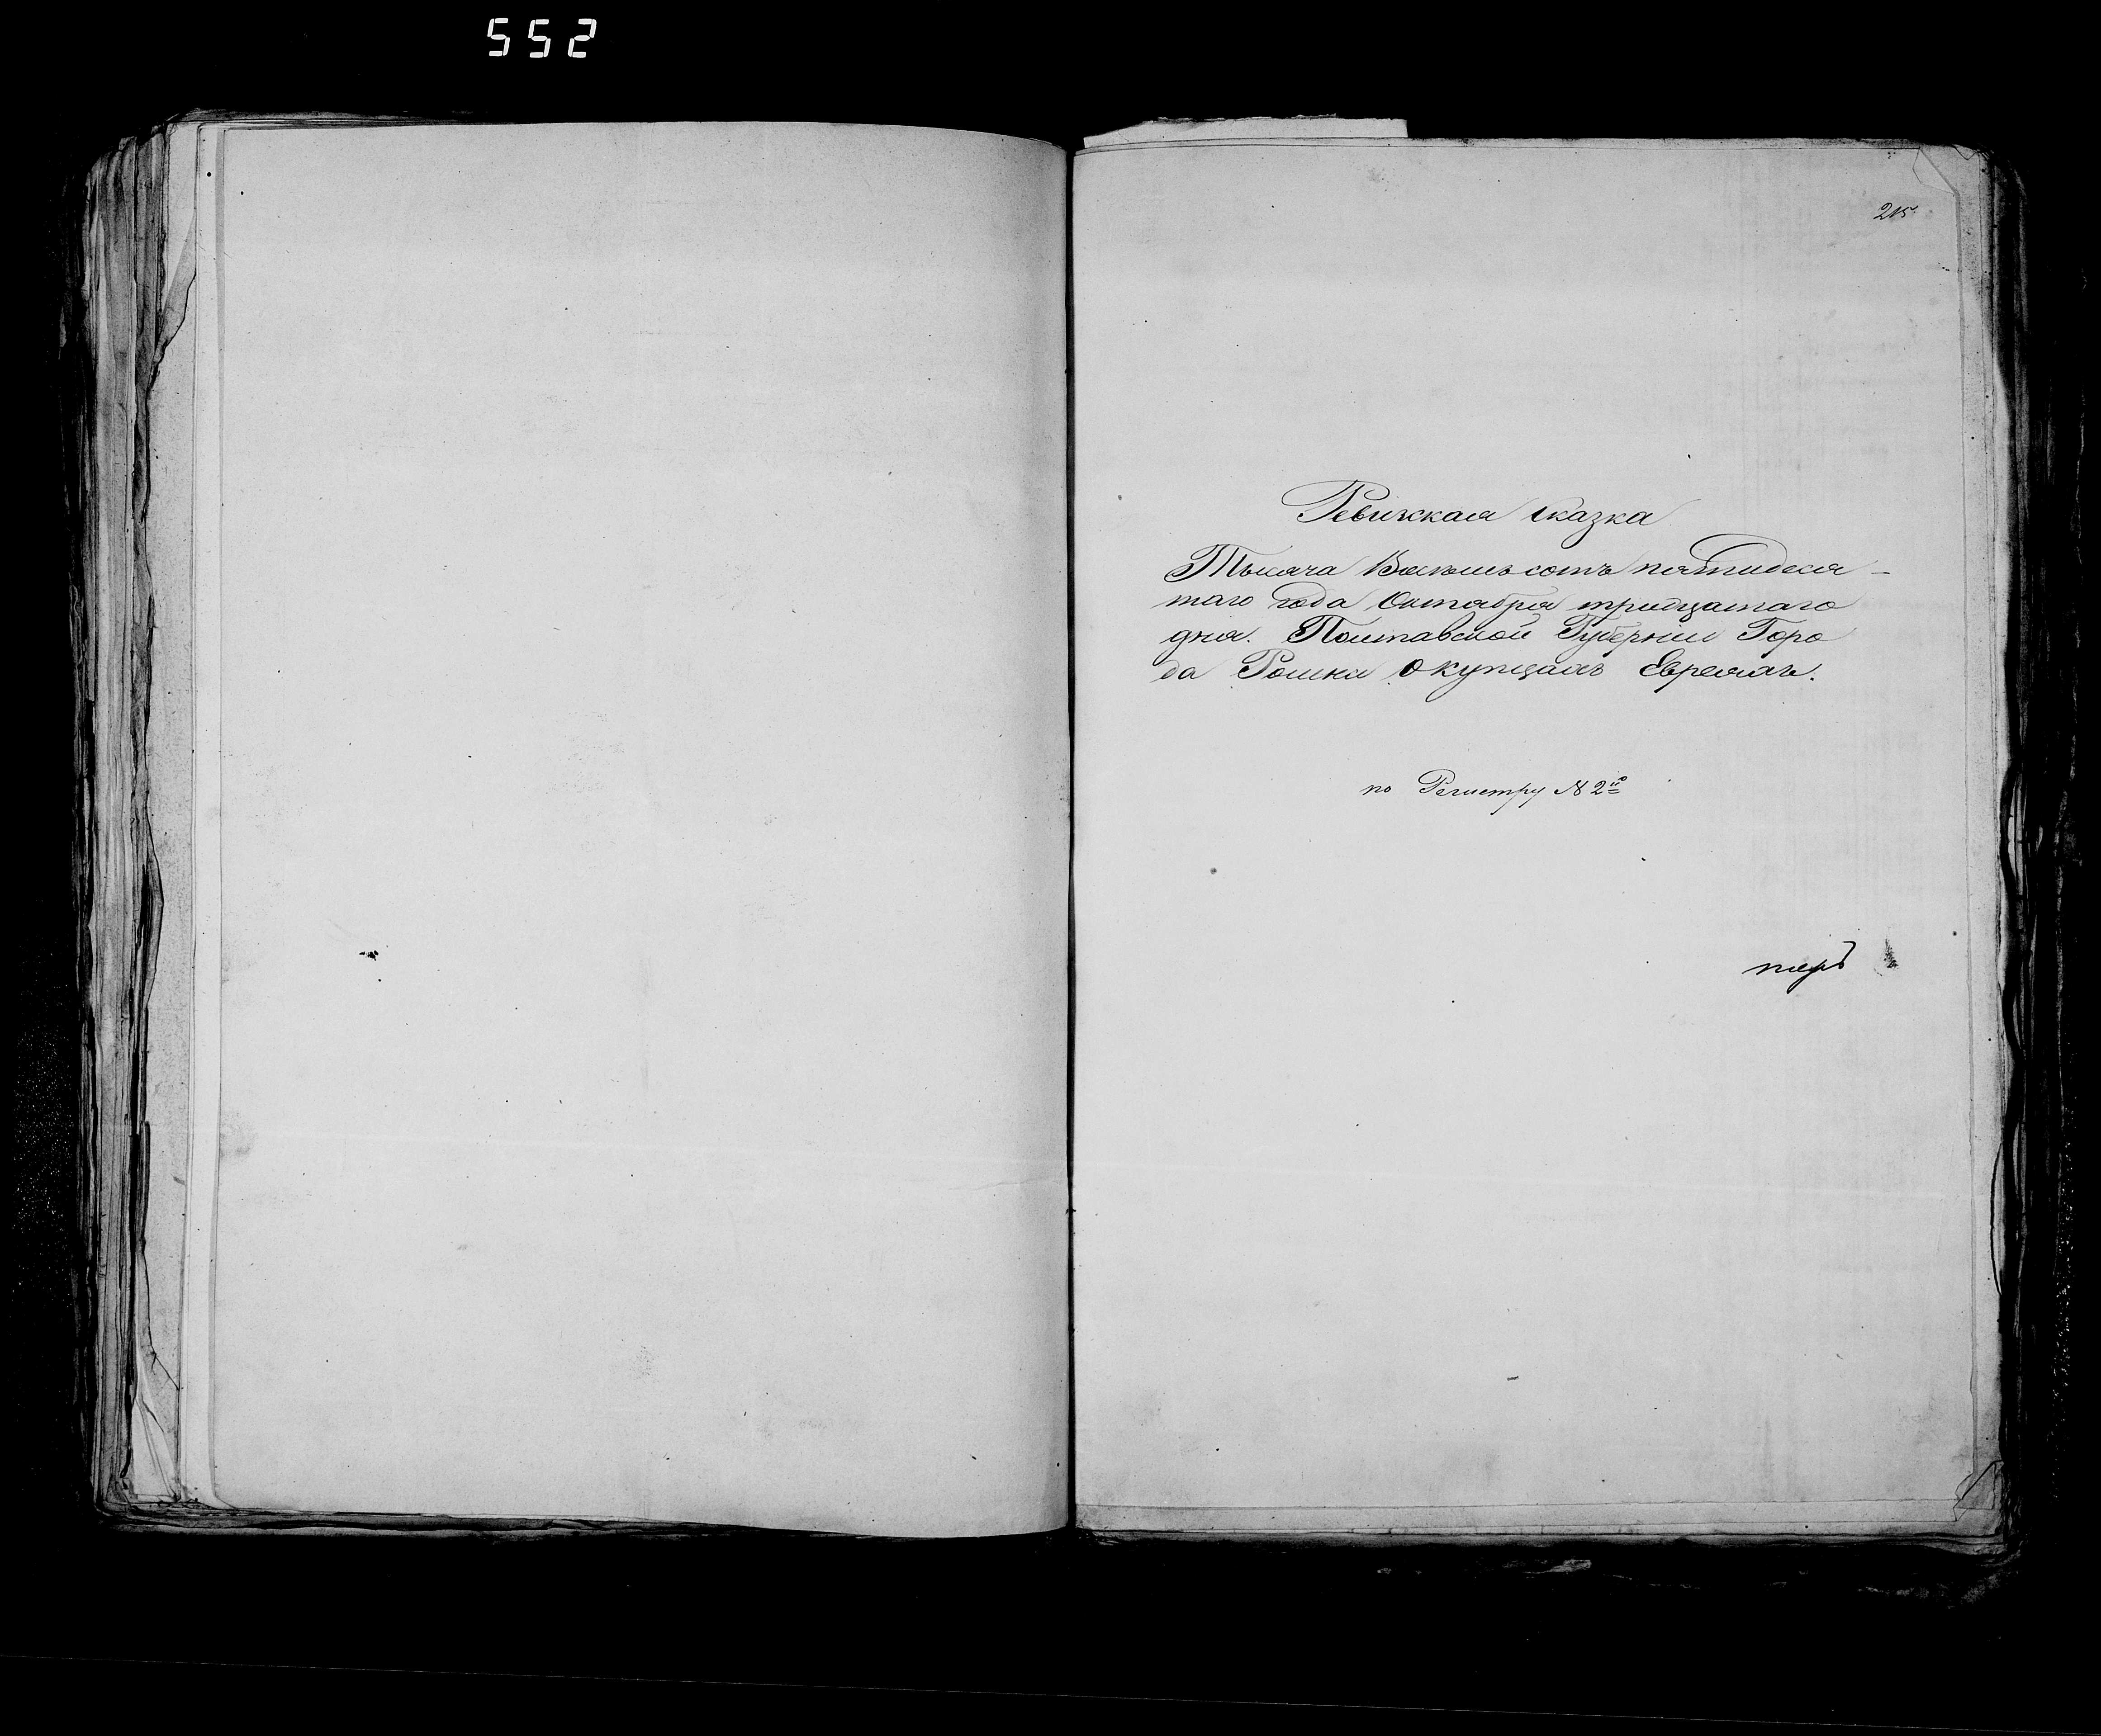 552
215
Ревижская сказка
Тысяча Восемьсотъ пятидеся-
таго года Октября тридцатаго
дня. Полтавской Губерніи Горо
да Ромна о купцахъ Евреяхъ.
по Регистру № 2й